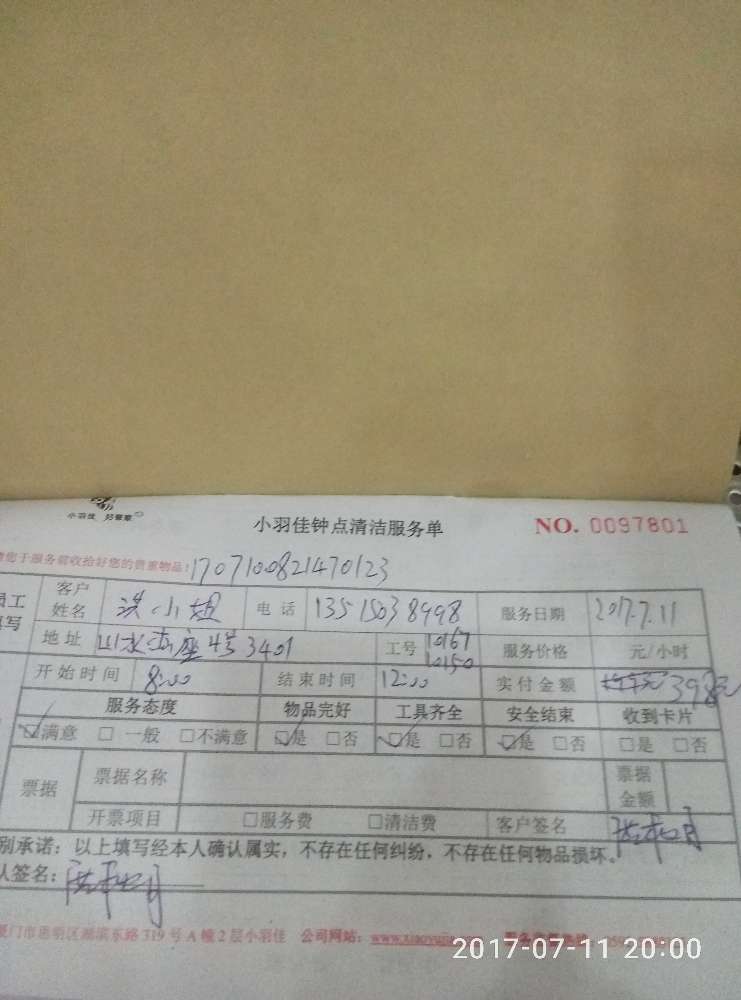 小羽佳 好管家
小羽佳钟点清洁服务单 NO. 0097801
您于服务前收拾好您的贵重物品! 1707100821470123
员工 填写 客户姓名 洪小姐 电话 13515038998 服务日期 2017.7.11
地址 山水 座4号3401 工号 10167 10150 服务价格 元/小时
开始时间 8:00 结束时间 12:00 实付金额 398元
服务态度 物品完好 工具齐全 安全结束 收到卡片
☑满意 □一般 □不满意 ☑是 □否 ☑是 □否 ☑是 □否 □是 □否
票据 票据名称 票据金额
开票项目 □服务费 □清洁费 客户签名
别承诺：以上填写经本人确认属实，不存在任何纠纷，不存在任何物品损坏。
人签名：
厦门市思明区湖滨东路319号A幢2层小羽佳 公司网站：
2017-07-11 20:00